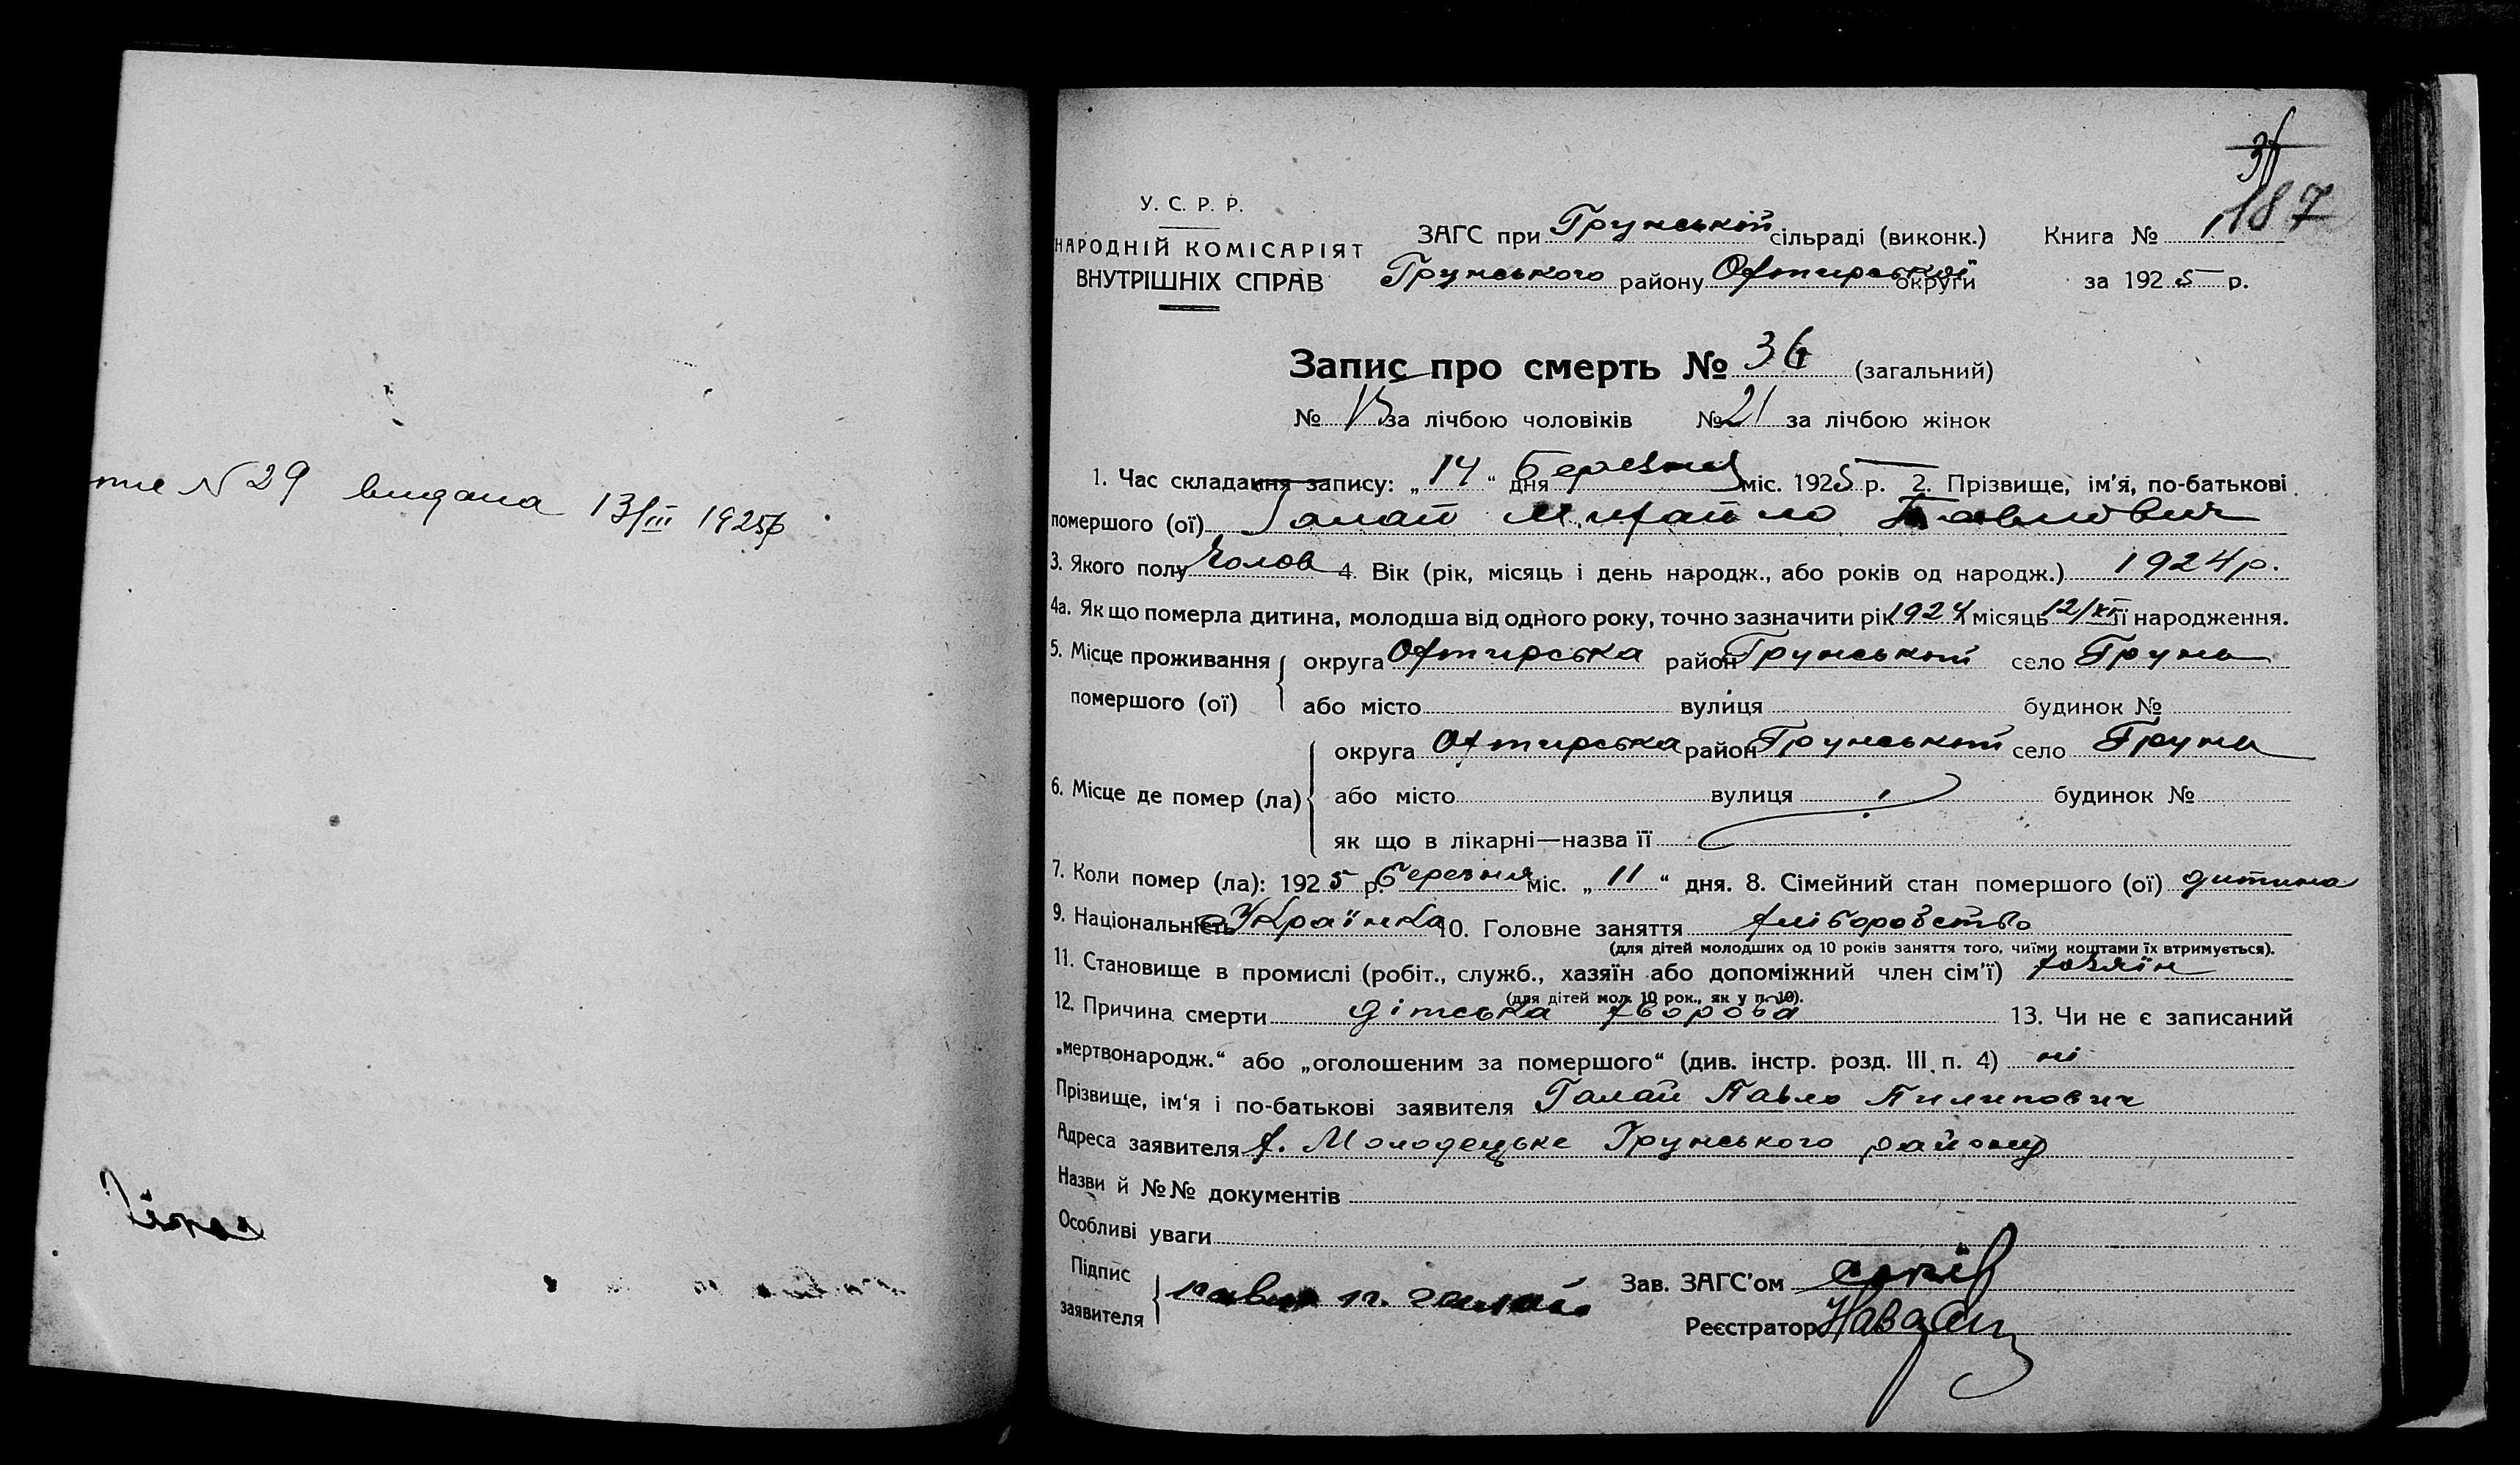 № 29 видана 13/III 1925р
187
У. С. Р. Р.
НАРОДНІЙ КОМІСАРІЯТ
ВНУТРІШНІХ СПРАВ
ЗАГС при Грунській сільраді (виконк.) Книга № 1
Грунського району Охтирської округи за 1925 р.
Запис про смерть № 36 (загальний)
№ 15 за лічбою чоловіків № 21 за лічбою жінок
1. Час складання запису: „ 14 “ дня Березня міс. 1925 р. 2. Прізвище, ім'я, по-батькові
помершого (ої) Галай Михайло Павлович
3. Якого полу Чолов 4. Вік (рік, місяць і день народж., або років од народж.) 1924 р.
4а. Як що померла дитина, молодша від одного року, точно зазначити рік 1924 місяць 12/XI її народження.
5. Місце проживання помершого (ої) округа Охтирська район Грунський село Грунь
або місто вулиця будинок №
6. Місце де помер (ла) округа Охтирська район Грунський село Грунь
або місто вулиця будинок №
як що в лікарні—назва її
7. Коли помер (ла): 1925 р. Березня міс. „ 11 “ дня. 8. Сімейний стан помершого (ої) дитина
9. Національність Українка 10. Головне заняття хліборобство
(для дітей молодших од 10 років заняття того, чиїми коштами їх втримується).
11. Становище в промислі (робіт., служб., хазяїн або допоміжний член сім'ї) хазяїн
(для дітей мол. 10 рок., як у п. 10).
12. Причина смерти дітська хвороба 13. Чи не є записаний
„мертвонародж.“ або „оголошеним за помершого“ (див. інстр. розд. III, п. 4) ні
Прізвище, ім'я і по-батькові заявителя Галай Павло Пилипович
Адреса заявителя х. Молодецьке Грунського району
Назви й №№ документів
Особливі уваги
Підпис заявителя павло п. галай Зав. ЗАГС'ом
Реєстратор